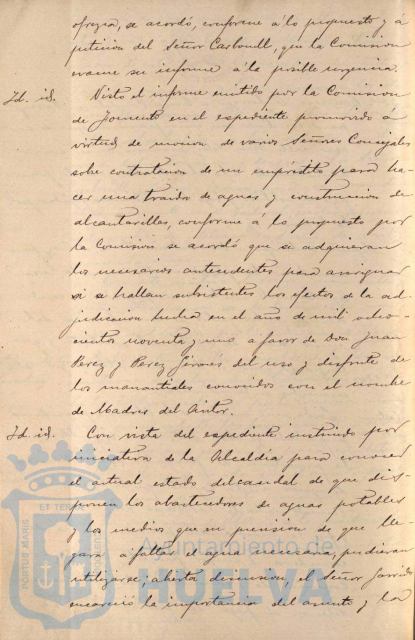 ofrezca, se acordó, conforme á lo propuesto y á
peticion del Señor Carbonell, que la Comision
evacue su informe á la posible urgencia.
Id. id. Visto el informe emitido por la Comision
de Fomento en el expediente promovido á
virtud de mocion de varios Señores Concejales
sobre contratacion de un empréstito para ha-
cer una traida de aguas y construccion de
alcantarillas, conforme á lo propuesto por
la Comision se acordó que se adquieran
los necesarios antecedentes para averiguar
si se hallan subsistentes los efectos de la ad-
judicacion hecha en el año de mil ocho-
cientos noventa y uno á favor de Don Juan
Perez y Perez Gironés del uso y disfrute de
los manantiales conocidos con el nombre
de Madres del Avitor.
Id. id. Con vista del expediente instruido por
iniciativa de la Alcaldía para conocer
el actual estado del caudal de que dis-
ponen los abastecedores de aguas potables
y los medios que en prevision de que lle-
gara á faltar el agua necesaria, pudieran
utilizarse; abierta discusion, el Señor Garrido
encareció la importancia del asunto y la
PORTUS MARIS
ET TERR
Ayuntamiento de
HUELVA